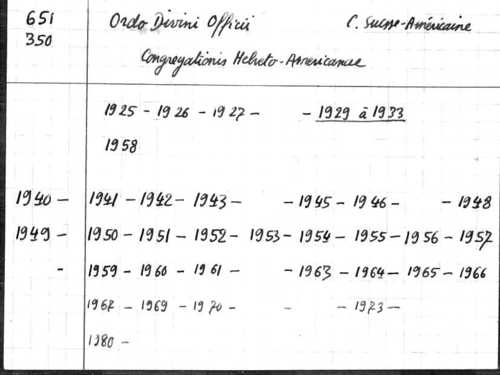 651 Ordo Divini Officii C. Suisse-Américaine
350
Congregationis Helveto-Americanae
1925 - 1926 - 1927 - - 1929 à 1933
1958
1940 - 1941 - 1942 - 1943 - - 1945 - 1946 - - 1948
1949 - 1950 - 1951 - 1952 - 1953 - 1954 - 1955 - 1956 - 1957
- 1959 - 1960 - 1961 - - 1963 - 1964 - 1965 - 1966
1967 - 1969 - 1970 - - - 1973 -
1980 -